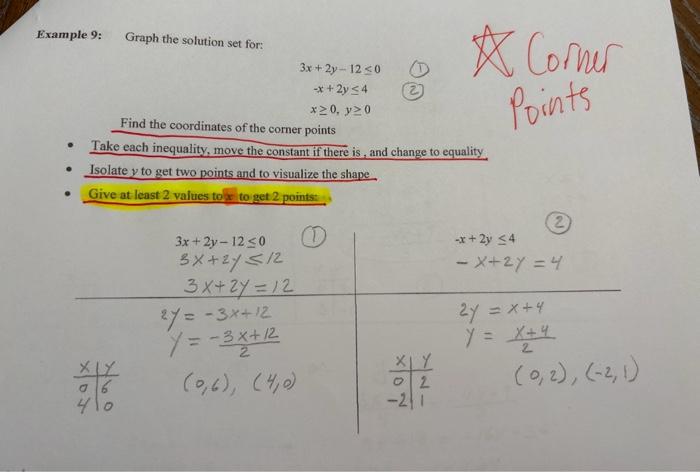 Example 9: Graph the solution set for:
☆ Corner
Points
3x + 2y – 12 ≤ 0 ①
-x + 2y ≤ 4 ②
x ≥ 0, y ≥ 0
Find the coordinates of the corner points
• Take each inequality, move the constant if there is , and change to equality
• Isolate y to get two points and to visualize the shape
• Give at least 2 values to x to get 2 points:
3x + 2y – 12 ≤ 0 ①
3x + 2y ≤ 12
3x + 2y = 12
2y = -3x + 12
y = -3x+12
2
x | y
0 | 6
4 | 0
(0,6), (4,0)
②
-x + 2y ≤ 4
-x + 2y = 4
2y = x + 4
y = x+4
2
x | y
0 | 2
-2 | 1
(0,2), (-2,1)